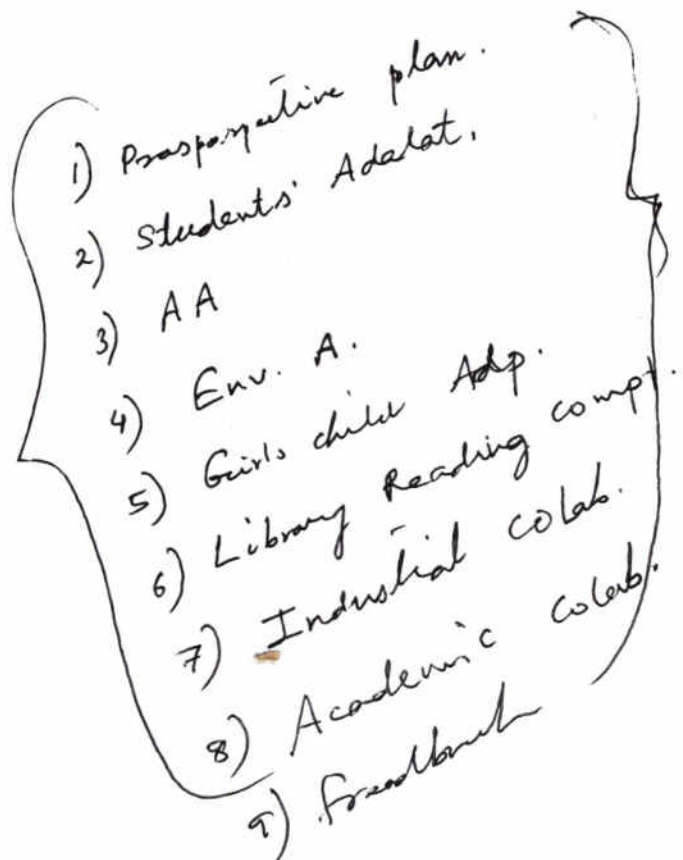 1) Prosparpective plan.
2) Students' Adalat.
3) AA
4) Env. A.
5) Girls child Adp.
6) Library Reading compt.
7) Industial colab.
8) Academic colab.
9)